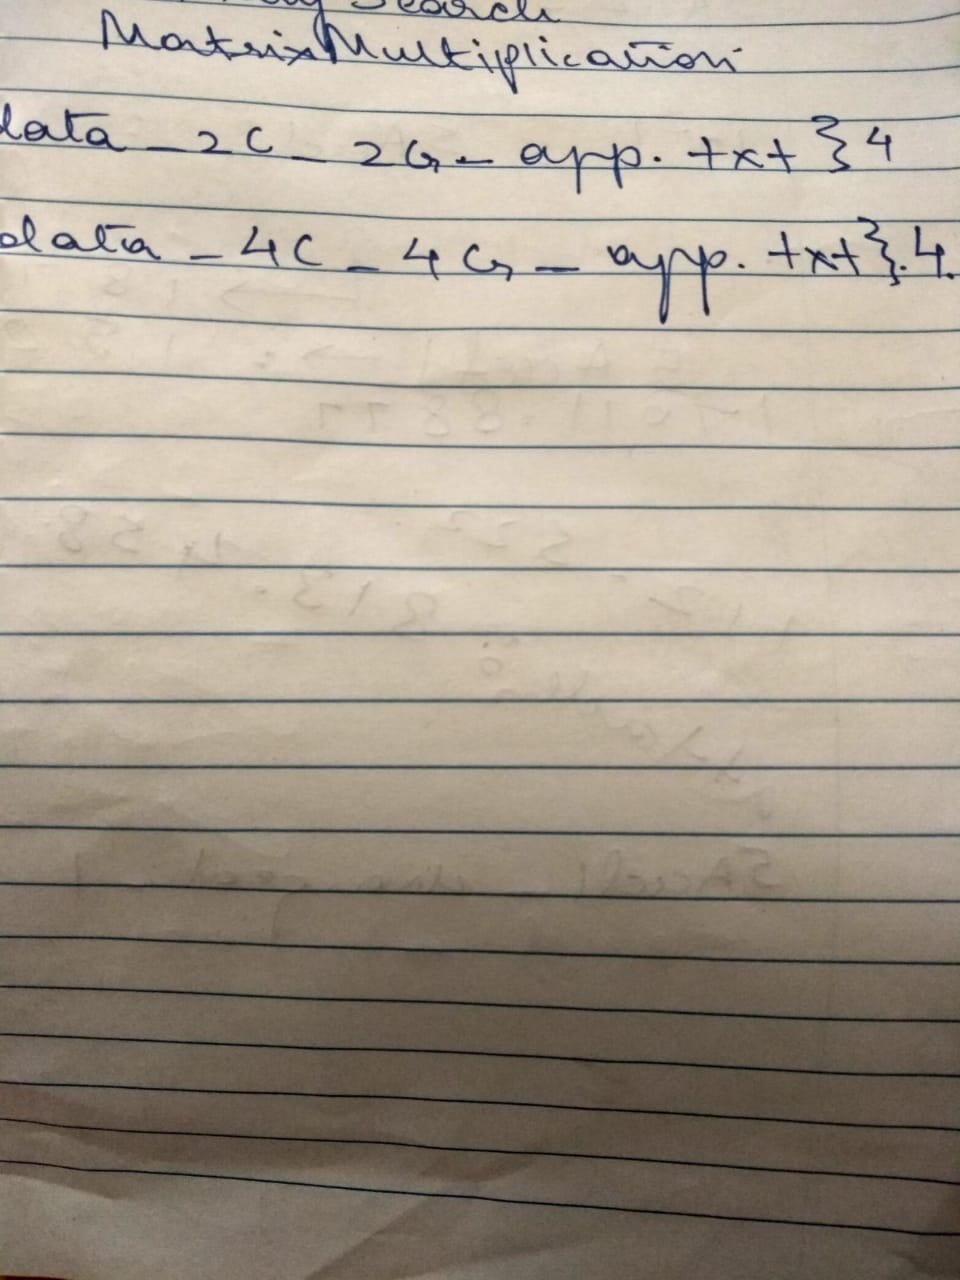 Search
Matrix Multiplication
data - 2C - 2G - app. txt } 4
data - 4C - 4G - app. txt }. 4.